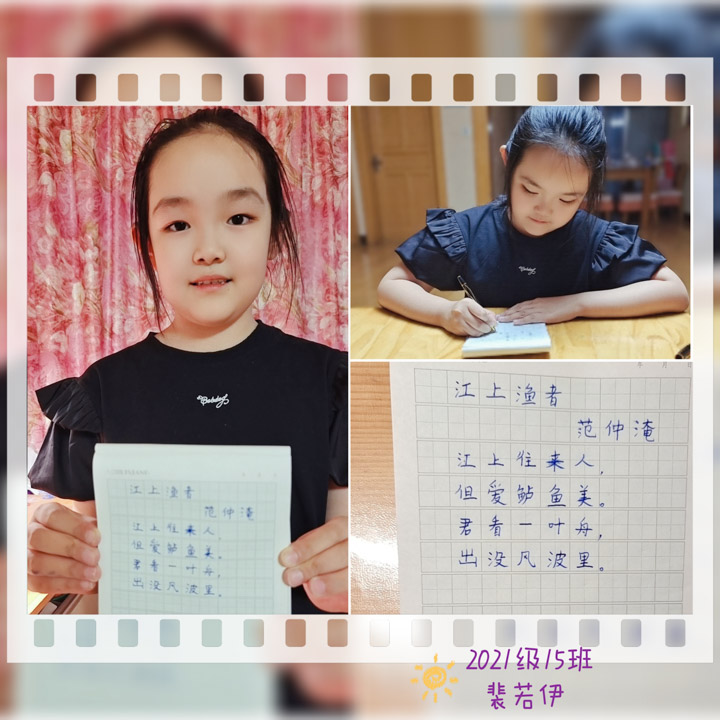 江上渔者
范仲淹
江上往来人，
但爱鲈鱼美。
君看一叶舟，
出没凡波里。
江上渔者
范仲淹
江上往来人，
但爱鲈鱼美。
君看一叶舟，
出没凡波里。
2021级15班
裴若伊